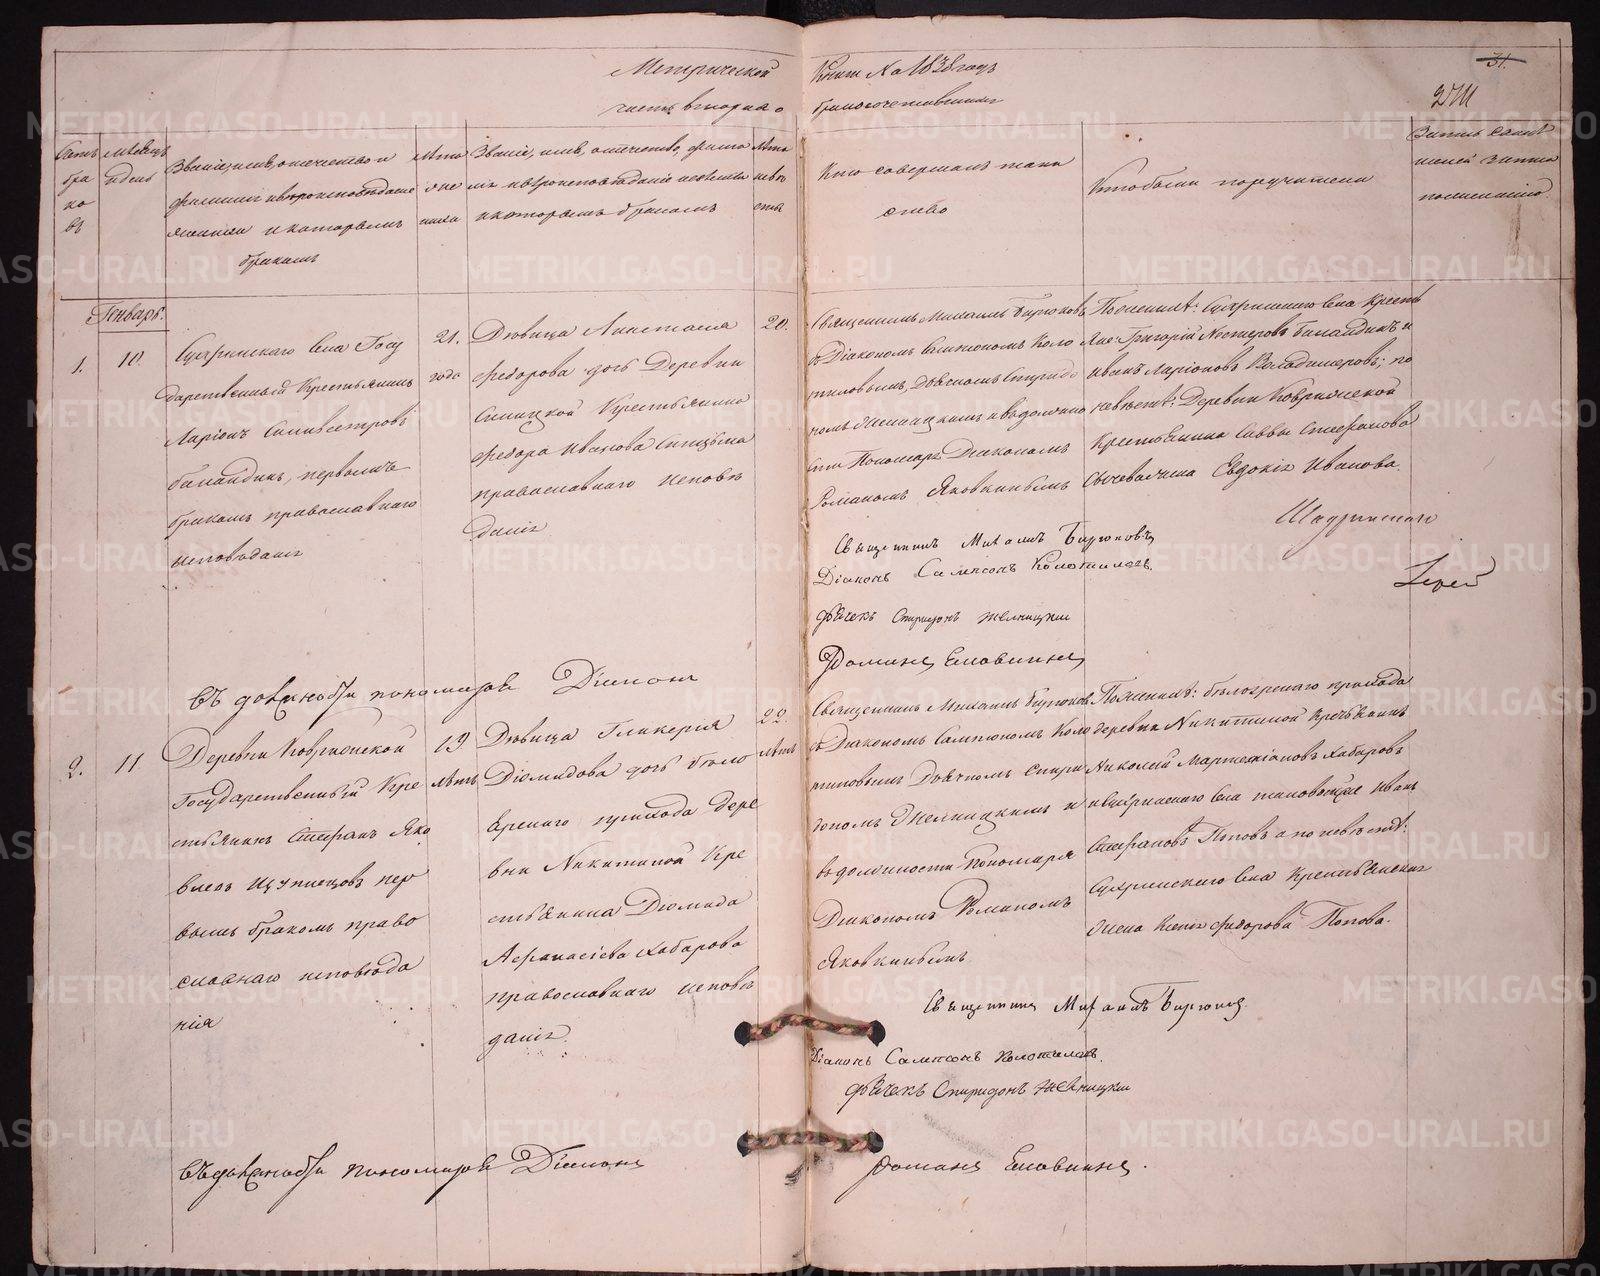 Метрической Книги На 1838 годъ
часть вторая о бракосочетавшихся
31.
Мѣсяцъ и день
Званіе, имя, отечество и фамилія и вѣроисповѣданіе жениха и которымъ бракомъ
Лѣта жениха
Званіе, имя, отечество, фамилія и вѣроисповѣданіе невѣсты и которымъ бракомъ
Лѣта невѣсты
Кто совершалъ таинство
Кто были поручители
Генварь.
1.
10.
Сухринскаго Села Госу
дарственный Крестьянинъ
Ларіонъ Силивестровъ
баландинъ, первымъ
бракомъ православнаго
исповѣданія
21.
года
Дѣвица Анастасія
Федорова дочь Деревни
Синицкой Крестьянина
Федора Иванова Синицына
православнаго исповѣ
данія
20.
Священникъ Михаилъ Бирюковъ
съ Діакономъ Сампсономъ Коло
тиловымъ, Дьячкомъ Спиридо
номъ Желницкимъ и въ должно
сти Пономаря Діакономъ
Романомъ Яковкинымъ
По женихѣ: Сухринскаго Села Кресть
яне: Григорій Нестеровъ Баландинъ и
Иванъ Ларіоновъ Володимеровъ; по
невѣстѣ: Деревни Ковриженской
Крестьянина Саввы Стефанова
Сычева жена Евдокія Иванова.
Священникъ Михаилъ Бирюковъ
Діаконъ Сампсонъ Колотиловъ.
Дьячекъ Спиридонъ Желницкій
Въ должности пономаря Діаконъ
Романъ Еловкинъ
2.
11
Деревни Ковриженской
Государственный Кре
стьянинъ Стефанъ Яко
влевъ пер
вымъ бракомъ право
славнаго исповѣда
нія
19
лѣтъ
Дѣвица Гликерія
Діомидова дочь Бѣло
ярскаго прихода дере
вни Никитиной Кре
стьянина Діомида
Афанасіева Хабарова
православнаго исповѣ
данія.
22.
лѣтъ
Священникъ Михаилъ Бирюковъ
съ Діакономъ Сампсономъ Коло
тиловымъ Дьячкомъ Спири
дономъ Желницкимъ и
въ должности Пономаря
Діакономъ Романомъ
Яковкинымъ
По женихѣ: бѣлоярскаго прихода
деревни Никитиной Крестьянинъ
Николай Хабаровъ
и Сухринскаго Села таковой же Иванъ
Стефановъ Поповъ а по невѣстѣ:
Сухринскаго Села Крестьянская
жена Ксенія Федорова Попова.
Священникъ Михаилъ Бирюковъ
Діаконъ Сампсонъ Колотиловъ.
Дьячекъ Спиридонъ Желницкій
Въ должности пономаря Діаконъ
Романъ Еловкинъ.
METRIKI.GASO-URAL.RU